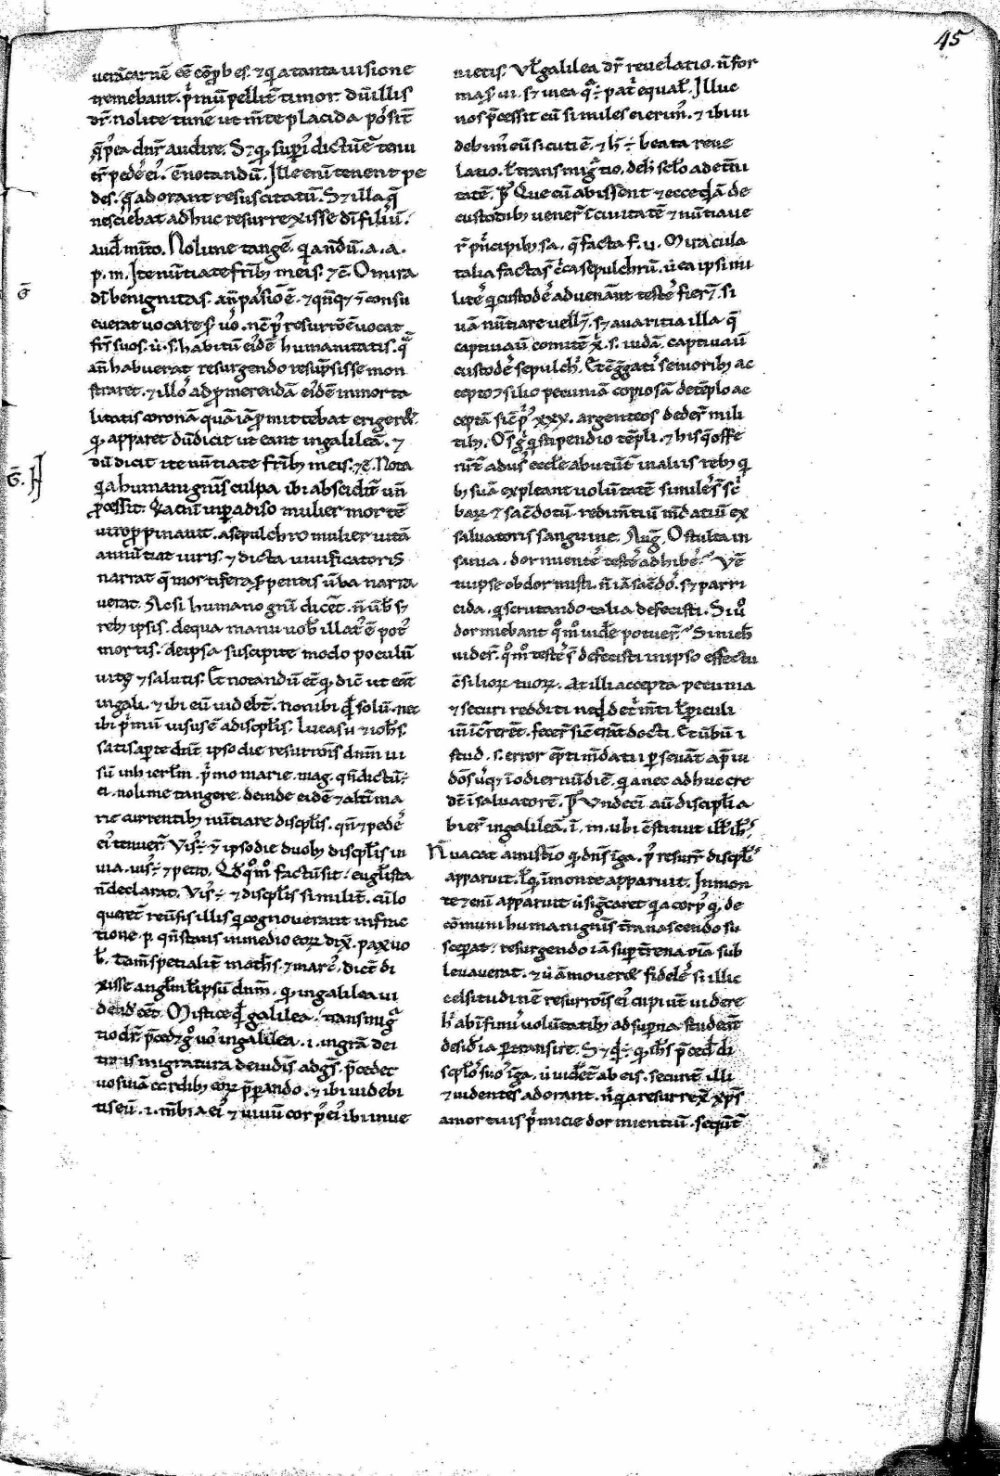 45
uerā carnē eē cōprob es. ⁊ q̄a tanta uisione
tremebant. p̄mū pellit̄ timor. dū illis
dr̄. nolite timē ut m̄te placida pos̄it
tr̄ pedē ei᾽. ē notandū. Ille enī tenent pe
des. q̄ adorant resuscitatū. S; illa q̄
nesciebat adhuc resurrexisse dī filiū.
aud̄ mīto. Noli me tangē. q̄ andū. a. a.
p. m. Ite nūtiate frīb; meis. ⁊ē. O mira
dī benignitas. añ pāsiōē. ⁊ qn̄q; ī consu
euerat uocare s; uo᾽. nē p᾽ resurrōē uocat
frē suos. ū. s. habitū eidē humanitatis. q̄
añ habuerat resurgendo resūpsisse mon
straret. ⁊ illo᾽ ad p̄merendā eidē inmorta
litatis coronā quā iā p̄mittebat erigeret.
q̄. apparet dū dicit ut eant in galileā. ⁊
dū dicit ite nūtiate frīb; meis. ⁊ē. Nota
ḡ. H
q̄a humani gn̄is culpa ibi abscidit̄ un̄
p̄cessit. Q̄a eni in paradiso mulier mortē
uiro p̄pinauit. a sepulchro mulier uitā
annūtiat uiris. ⁊ dicta uiuificatoris
narrat. q̄ mortifera s̄pentis ūba narra
uerat. Ac si humano gn̄i dicēt. n̄ ūb᾽ s;
reb; ipsis. de qua manu uob᾽ illat᾽ ē pot᾽
mortis. de ipsa suscipite modo poculū
uitę ⁊ salutis. Et notandū ē q̄. dic̄ ut eāt
in gali. ⁊ ibi eū uidebt̄. non ibi q̄d solū. nec
ibi p̄mū uisus ē a discipl̄is. Lucas ū ⁊ ioh̄s.
satis apte dn̄t ipso die resurrōis dn̄m ui
sū in hierl̄m. p̄mo marie. mag. qn̄ dictū ē
ei. noli me tangere. deinde eidē ⁊ altī ma
rie currentib; nūtiare discipl̄is. qn̄ ⁊ pedē
ei᾽ tenuer̄. Vis᾽ ē ⁊ ipso die duob; discipl̄is in
uia. uis᾽ ē ⁊ petro. Q̄d q̄m̊ factū sit. eugl̄ista
n̄ declarat. Vis᾽ ē ⁊ discipl̄is similit̄. cū lo
queret̄ reuersis illis q̄ cognouerant in frac
tione. p. qn̄ stans in medio eoꝝ dix̄. pax uo
b᾽. Tam̄ specialit̄ math̄s. ⁊ marc᾽. dicēt di
xisse angl̄m ł ipsū dn̄m. q̄ in galilea ui
dend᾽ eēt. Mistice q̄d galilea. transmig̅
tio dr̄. p̄cedet g̊ uo᾽ in galilea. i. in grām dei
in is migratura de iudeis ad gēs. p̄cedet
uos uiā cordib; eoꝝ p̄parando. ⁊ ibi uidebi
tis eū. i. mēbra ei᾽ ⁊ uiuū corp᾽ ei᾽ ibi inue
nietis. Vł galilea dr̄ reuelatio. n̄ for
ma s; ui. s; in ea q̄ ē pat̄ equal̄. Illuc
nos p̄cessit cū similes ei erim᾽. ⁊ ibi ui
debim᾽ eū sicuti ē. ⁊ h̄ ē beata reue
latio. ł transmig̅tio. de h̄ sclo᾽ ad et̄ni
tatē. ¶ Que cū abissent ⁊ ecce q̄dā de
custodib; uener̄ ī ciuitatē ⁊ nūtiaue
r̄ p̄ncipib; sa. q̄ facta f. ū. Miracula
talia facta s̄ c̄ca sepulchrū. ū ea ipsi mi
lites q̄ custodē aduenānt testes fier̄. si
uā nūtiare uellē. s; auaritia illa q̄
captiuaū comitē x̄. s. iudā. captiuaū
custodē sepulchri. Et cḡgati s̄ seniorib; ac
cepto ꝯsilio pecuniā copiosā de tēplo ac
ceptā sic p᾽ xxx. argenteos deder̄ mili
tib;. Om̄s g̊ q̄ stipendio tēpli. ⁊ his q̄ offe
runt̄ ad us᾽ eccl̄e abutūt̄ in aliis reb; q̄
b; suā expleant uolūtatē similes s̄ sc̄
baꝝ ⁊ sacdotū redimtiū m̄datiū ex
saluatoris sanguine. Aug. O stulta in
sania. dormientē testē adhibē. Vē
tu ipse obdormisti. n̄ iā sacdo᾽. s; parri
cida. q̄ scrutando talia defecisti. Si u̅o
dormiebant q̊m̊ uidē potuer̄. Si nich̄
uider̄. q̊m̊ testē s̄ defecisti in ipso effectu
ꝯsilioꝝ tuoꝝ. At illi accepta pecunia
⁊ securi redditi ne q̄d det̄m̄ti ł periculi
in īcr̄erēt. fecer̄ sic erant docti. Et ūbū i
stud. s. error q̄ ēti m̄dati i p̄seuāt ap̄ iu
dōs us̄q; ī odiernū diē. q̄a nec adhuc cre
dt̄ ī saluatorē. ¶ Vndeci aū discipl̄i a
bier̄ in galileā. ī. m. ubi ꝯstituit ill̄ ih̄s.
N̄ uacat a misterio q̄ dn̄s ī ga. p᾽ resurr̄ discipl̄is
apparuit. ł q̄. in monte apparuit. In mon
te ⁊ enī apparuit ū sig̅caret q̄a corp᾽ q̄. de
cōmuni humani gn̄is t̄ra nascendo su
sceperat. resurgendo iā sup t̄rena om̄ia sub
leuauerat. ⁊ ū ām̊ueret fidelē si illic
celsitudinē resurrōis ei᾽ cupiūt uidere
h̄ ab infimis uolūtatib; ad supna studeāt
desid̄ia ptransire. S; q̄d ē. q̄ ih̄s p̄cedit di
scipl̄o᾽ suo᾽ ī ga. ū uidēet᾽ ab eis. secunt̄ illi
⁊ uidentes adorant. n̄ q̄a resurrex̄ xp̄s
a mortuis p̄micie dormientiū. sequt̄